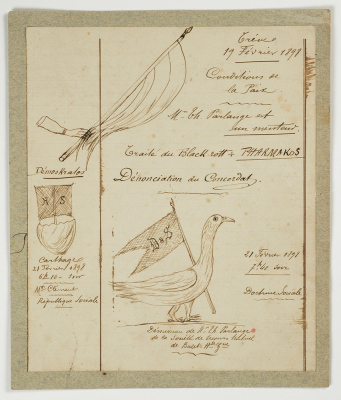 Trève
19 Février 1898
Conditions de
la Paix
Mr Th. Parlange est
un menteur.
Traité du Black rott + PHARMAKOS
Dénonciation du Concordat.
Démoskratos
R S
Carthage
21 Février 1898
6h.10 - soir
Mr Clément
République Sociale
D & S
21 Février 1898
7h.40 soir
Doctrine Sociale
Démission de Mr Th. Parlange
de la Société de
de